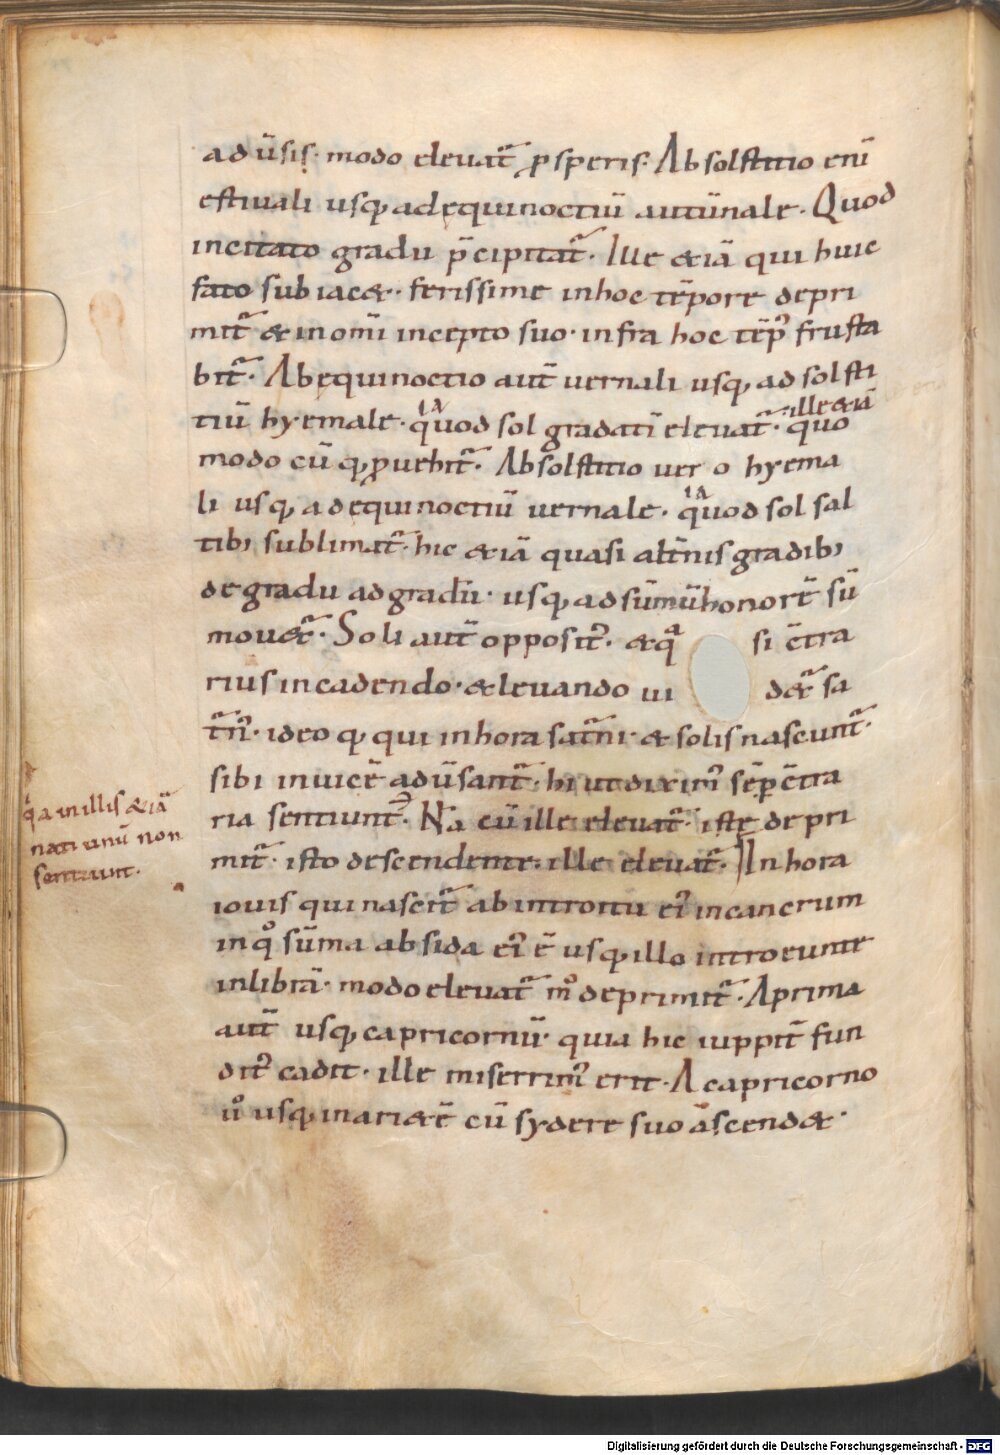 adūsis· modo eleuat᷑ ꝓsperis· Absolstitio enī
estiuali usq; adęquinoctiū autūnale· Quod
incitato gradu p̄cipitat᷑· Ille &iā qui huic
fato subiac&· ferissime inhoc tēpore depri
mit᷑ & inomī incepto suo· infra hoc tēp᷑ frusta
bit᷑· Abęquinoctio aut̄ uernali usq; ad solsti
tiū hyemale· quod sol gradatī eleuat᷑· ille &iā quo
modo cū q; ꝓuehit᷑· Absolstitio uer o hyema
li usq; adęquinoctiū uernale· quod sol sal
tib; sublimat᷑· hic &iā quasi alt̄nis gradib;
de gradu adgradū· usq; adsūmū honorē sū
mou&᷑· Soli aut̄ opposit᷑· &qᷓ si c̄tra
rius incadendo· &leuando ui d&᷑ sa
t᷑n᷑· ideo q; qui inhora sat᷑ni· & solis nascunt᷑·
sibi inuicē adūsant᷑· hi ut dixim᷑ sēp c̄tra
ria sentiunt᷑· Na cū ille eleuat᷑· iste depri
mit᷑· isto descendente· ille eleuat᷑· In hora
iouis qui nascit᷑ abintroitu ei᷑ incancrum
inqͦ sūma absida ei᷑ ē usq; illo introeunte
inlibrā· modo eleuat᷑ mͦ deprimit᷑· Aprima
aut̄ usq; capricornū· quia hic iuppit̄ fun
dit᷑ cadit· ille miserrim᷑ erit· A capricorno
uͦ usq; inari&ē cū sydere suo ascend&·
qa inillis &iā
nati unū non
sentiunt·
Digitalisierung gefördert durch die Deutsche Forschungsgemeinschaft - DFG